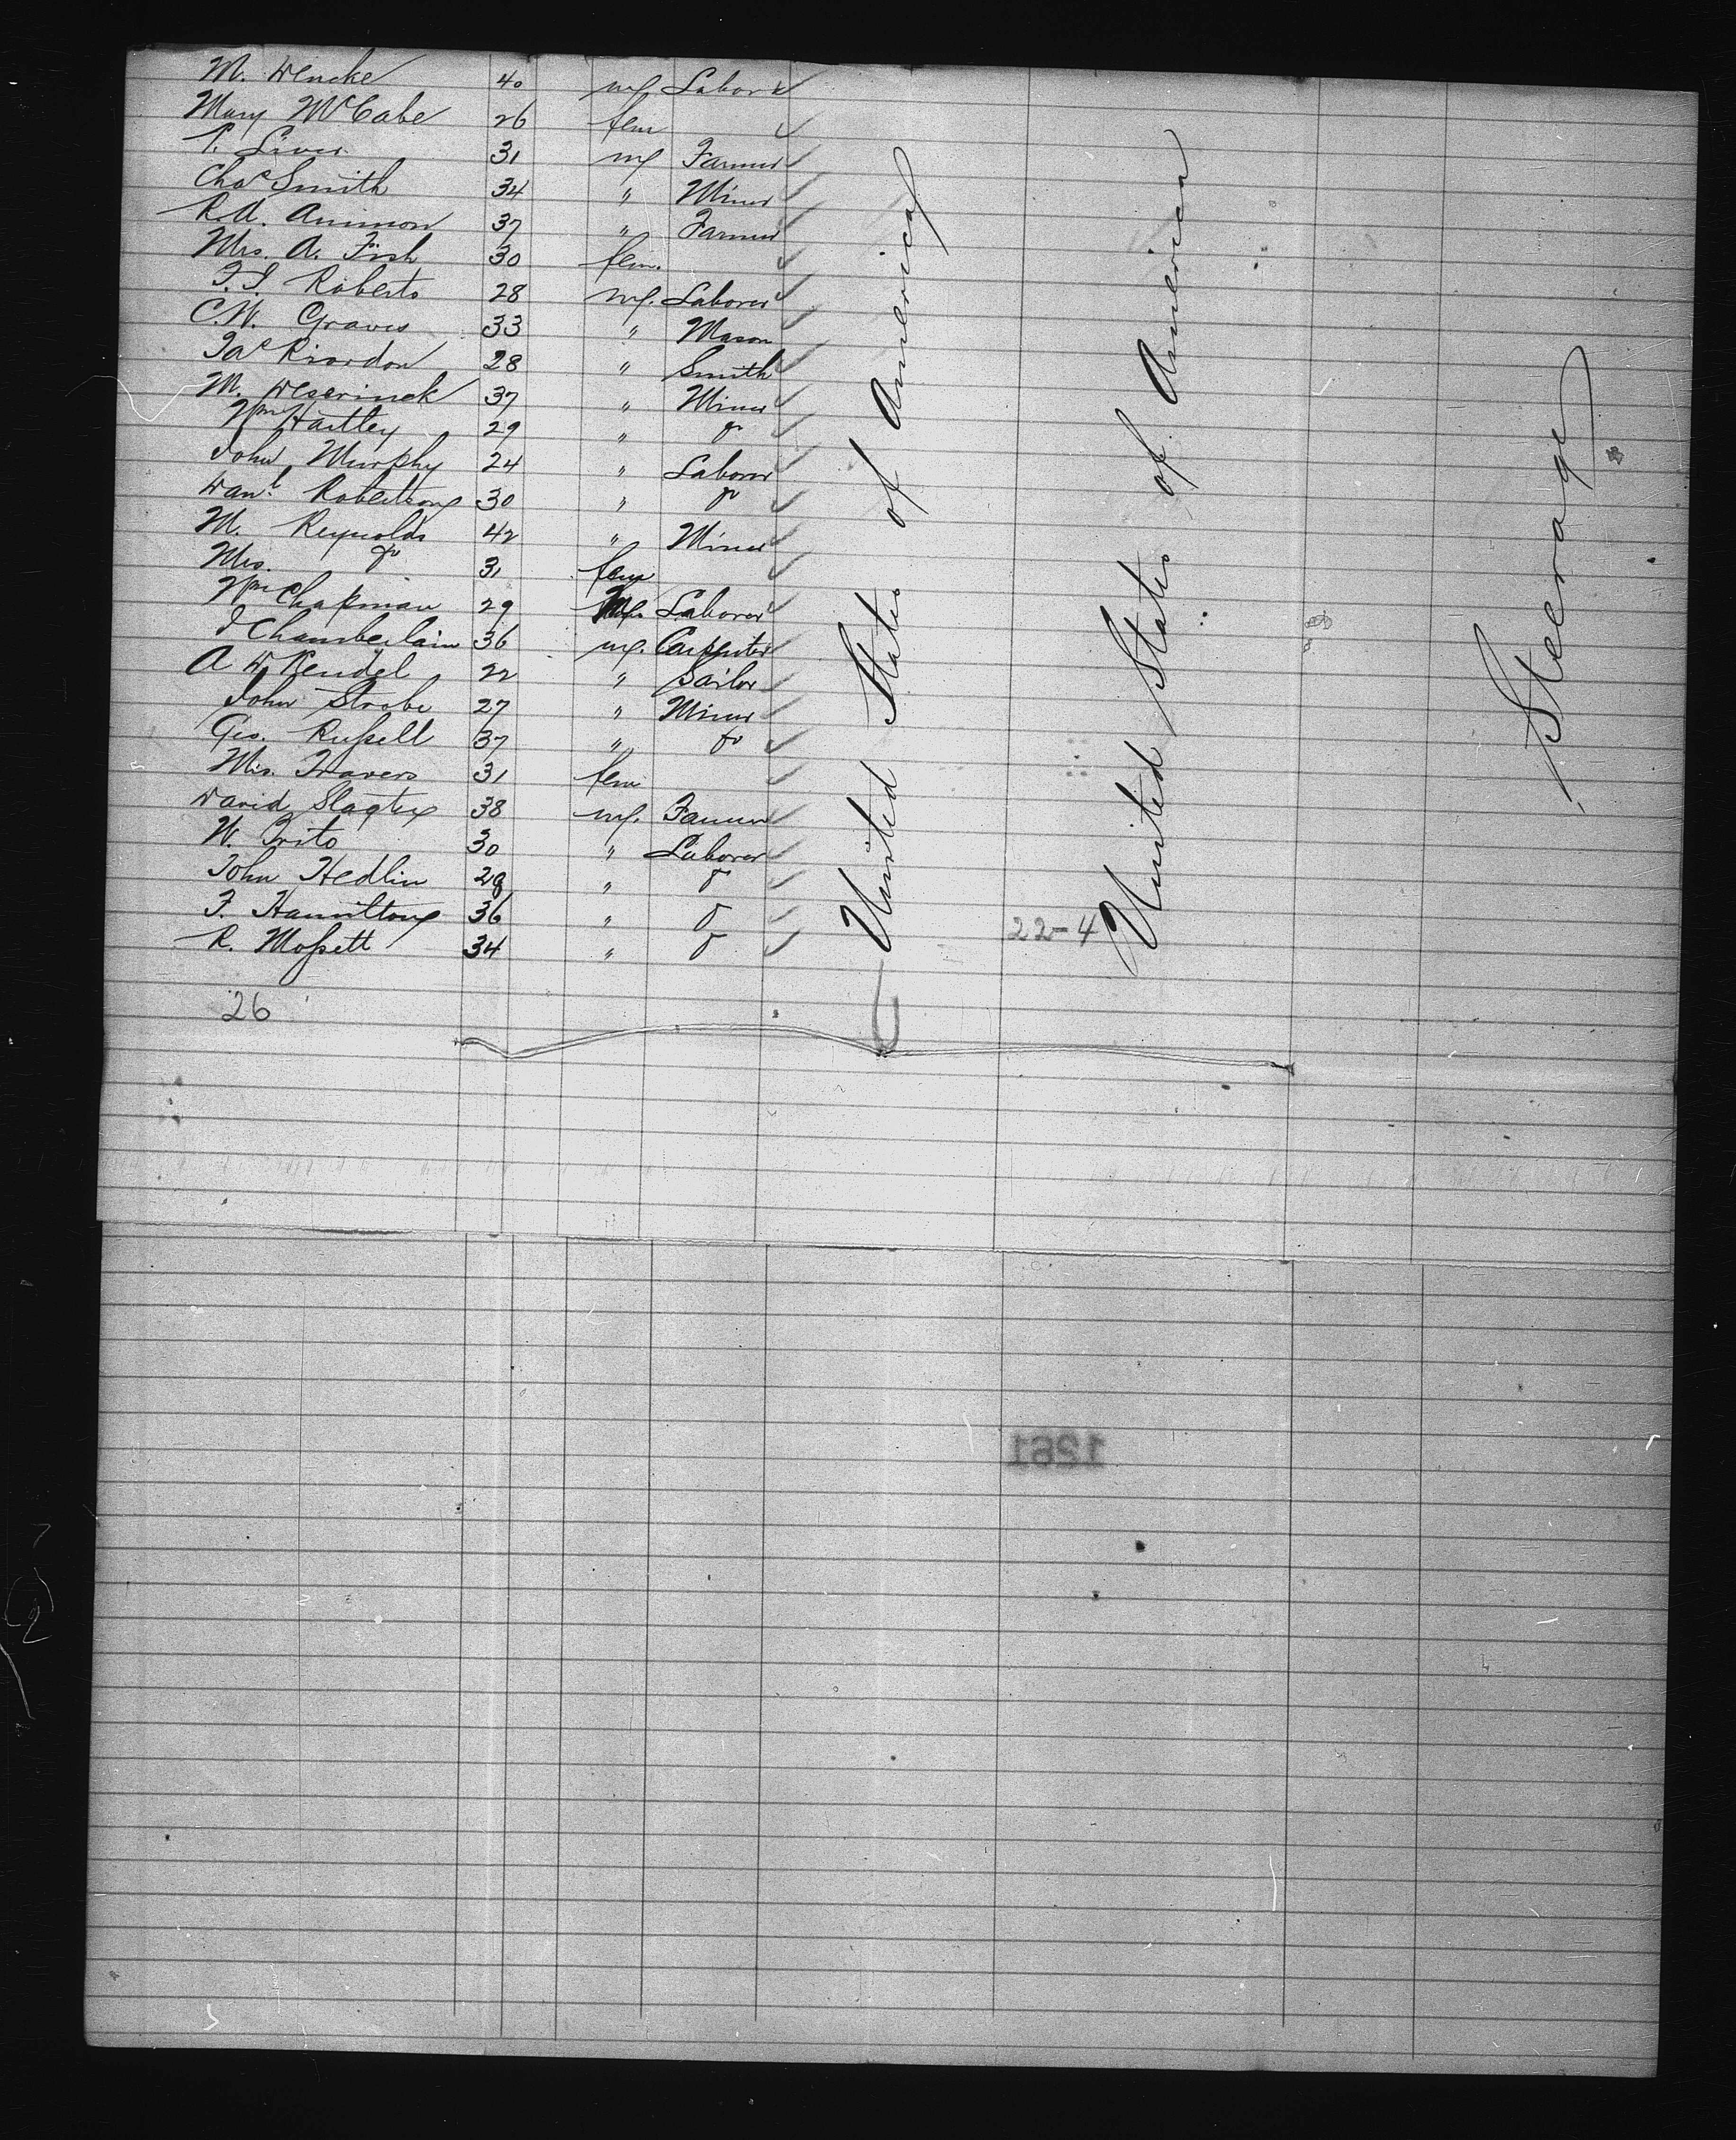 M. Wencke 40 m. Labor
Mary McCabe 26 fem
P. Liver 31 m Farmer
Chas Smith 34 " Miner
R.A. Ammon 37 " Farmer
Mrs. A. Fish 30 fem.
F.I. Roberts 28 m. Laborer
C.W. Graves 33 " Mason
Jas Riordon 28 " Smith
M. 37 " Miner
Wm Hartley 29 " do
John Murphy 24 " Laborer
Danl. Robertson 30 " do
M. Reynolds 42 " Miner
Mrs. do 31 fem
Wm Chapman 29 M. Laborer
J Chamberlain 36 m. Carpenter
A W Kendel 22 " Sailor
John Strobe 27 " Miner
Geo. Russell 37 " do
Mrs. Travers 31 fem
David Slagter 38 m. Farmer
W. Brito 30 " Laborer
John Hedlin 28 " do
F. Hamilton 36 " do
R. Mossett 34 " do
26
United States of America
22-4
United States of America
Steerage
1261